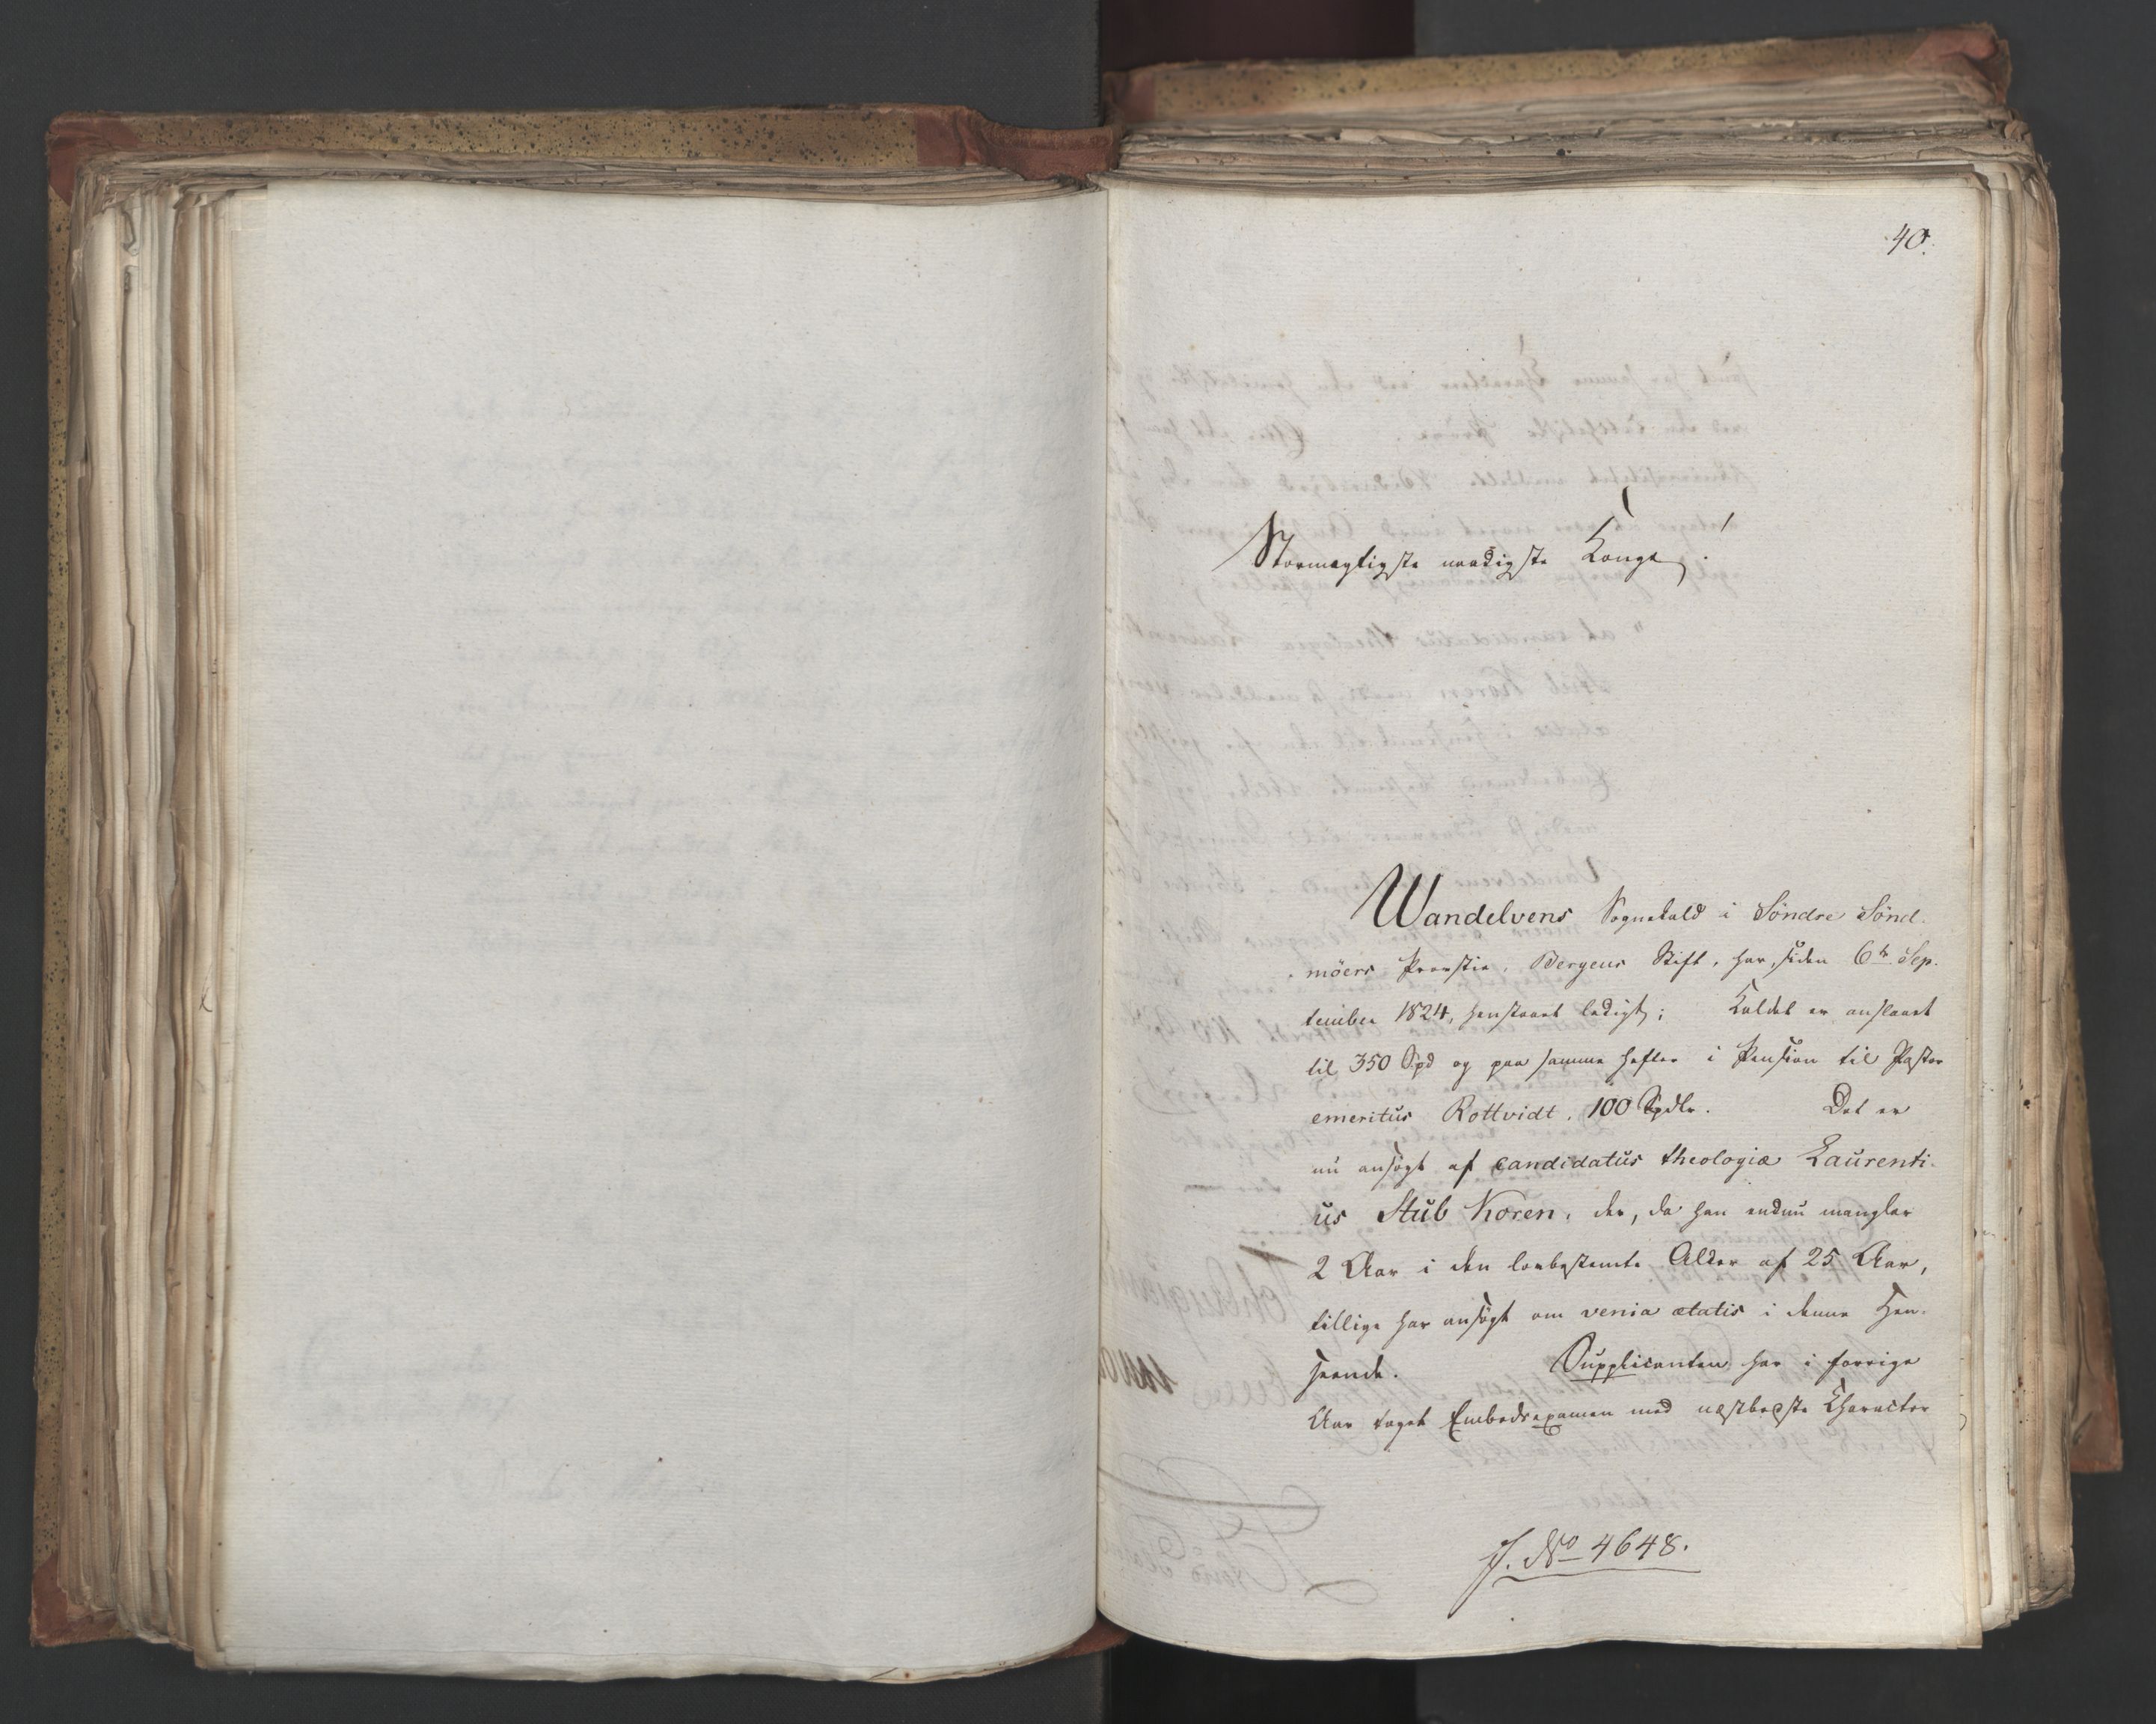 40.
Stormægtigste naadigste Konge!
Wandelvens Sognekald i Söndre Sönd-
möers Provstie, Bergens Stift, har, siden 6te Sep-
tember 1824, henstaaet ledigt; Kaldet er anslaaet
til 350 Spd og paa samme hefter i Pension til Pastor
emeritus Rottvidt, 100 Spdlr. Det er
nu ansögt af candidatus theologiæ Laurenti-
us Stub Koren, der, da han endnu mangler
2 Aar i den lovbestemte Alder af 25 Aar,
tillige har ansögt om venia ætatis i denne Hen-
seende. Supplicanten har i forrige
Aar taget Embedsexamen med næstbedste Character
J. No 4648.